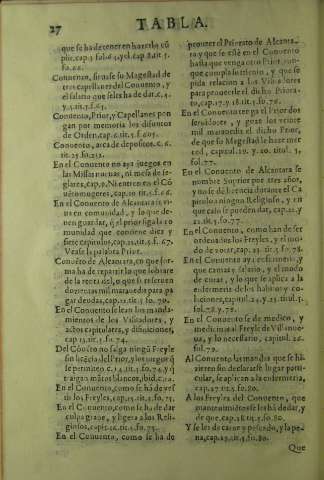 27 TABLA.
que se ha de tener en
cap. 3. tit. 6.
fo. 66.
Conuentos, siruase su Magestad de
tres capellanes del Conuento, y
el salario que se les ha de dar. c. 4.
Conuento, Prior, y Capellanes pon
gan por memoria los difuntos
de Orden, cap. 6. tit. 5.
Conuento, arca de depositos. c. 6.
tit. 25. fo. 212.
En el Conuento no aya juegos en
las Missas nueuas, ni mesa de se-
glares, cap. 9. Ni entren en el Có
uento mugeres, cap. 10. tit. 5. fo. 66.
En el Conuento de Alcantara se vi
ua en comunidad, y lo que de-
uen guardar, el prior siga la co
munidad que contiene diez y
siete capitulos, cap. 12. tit. 5. fo. 67.
Vease la palabra Prior.
Conuéto de Alcantara, en que for-
ma ha de repartir lo que sobrare
de la renta del, o que se reseruen
dozientas mil marauedis para pa
gar deudas, cap. 12. tit. 5. fo. 70.
En el Conuento se lean los manda-
mientos de los Visitadores, y
actos capitulares, y difiniciones,
cap. 13. tit. 5. fo. 74.
Del Cóuéto no salga ningú Freyle
sin licécia del Prior, y los
se permiten. c. 14. tit. 5. fo. 74. y
traigan mátos blancos, ibid. c. 12.
En el Conuento, como se há de vestir
los Freyles, cap. 15. tit. 5. fo.
En el Conuento, como se ha de dar
culpa graue, y ligera a los Reli-
giosos, cap. 16. tit. 5. fo. 75.
En el Conuento, como se ha de
proueer el Priorato de Alcanta-
ra, y que se esté en el Conuento
hasta que venga otro Prior, aun-
que cumpla su trienio, y que se
pida relacion a los Visitadores
para proueerle el dicho Priora-
to, cap. 17. y 18. tit. 5. fo. 76.
En el Conuento tenga el Prior dos
seruidores, y goze los veinte
mil marauedis el dicho Prior,
de que su Magestad le haze mer
ced, capitul. 19. y 20. titul. 5.
fol. 77.
En el Conuento de Alcantara se
nombre Suprior por tres años,
y no se dé licencia durante el Ca
pitulo a ningun Religioso, y en
que caso se pueden dar, cap. 21. y
22. tit. 5. fo. 77.
En el Conuento, como han de ser
ordenados los Freyles, y el mo-
do de votar, cap. 23. tit. 5. fo. 78.
En el Conuento aya enfermeria, y
que camas y salario, y el modo
de curar, y lo que se aplica a la
enfermeria de los habitos y co-
luciones, capitul. 24. y 25. titul. 5.
fol. 78. y 79.
En el Conuento se de medico, y
medicinas al Freyle de Villanue-
ua, y lo necessario, capitul. 26.
fol. 79.
Al Conuento las mandas que se hi-
zieren sin declararse lugar parti-
cular, se apliquen a la enfermeria,
cap. 27. tit. 5. fo. 80.
A los Freyles del Conuento, que
mantenimiétos se les há de dar, y
de que, cap. 28. tit. 5. fo. 80.
Y se les dé carne y pescado, y la pe-
na, cap. 29. tit. 5. fo. 80.
Que